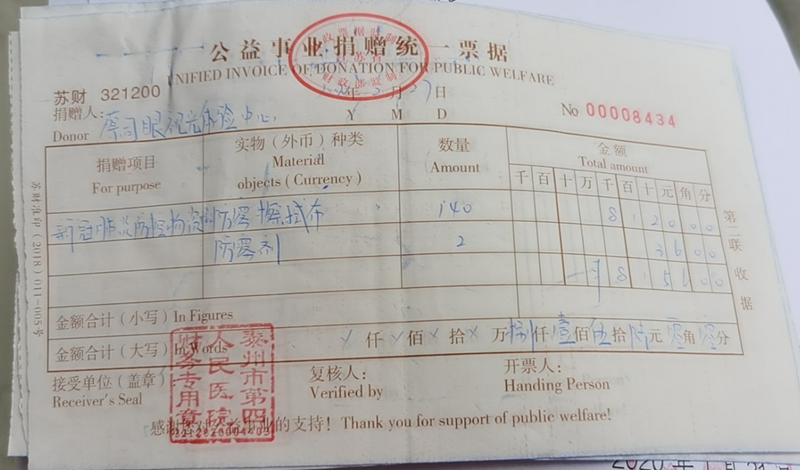 公益事业捐赠统一票据
UNIFIED INVOICE OF DONATION FOR PUBLIC WELFARE
苏财 321200
年 月27日
捐赠人:
Donor 视光体验中心
Y M D
No 00008434
捐赠项目 实物（外币）种类 数量 金额
For purpose Material Amount Total amount
objects (Currency) 千百十万千百十元角分
新冠肺炎防控物资 防雾擦拭布 140 8 1 2 0 0 0
防雾剂 2 3 6 0 0
8 1 5 6 0 0
金额合计（小写）In Figures
金额合计（大写）In Words 仟 佰 拾 万捌仟壹佰伍拾陆元零角零分
接受单位（盖章） 复核人: 开票人:
Receiver's Seal Verified by Handing Person
泰州市第四
人民医院
财务专用章
的支持! Thank you for support of public welfare!
苏财准印（2018）011-005号
第二联 收据